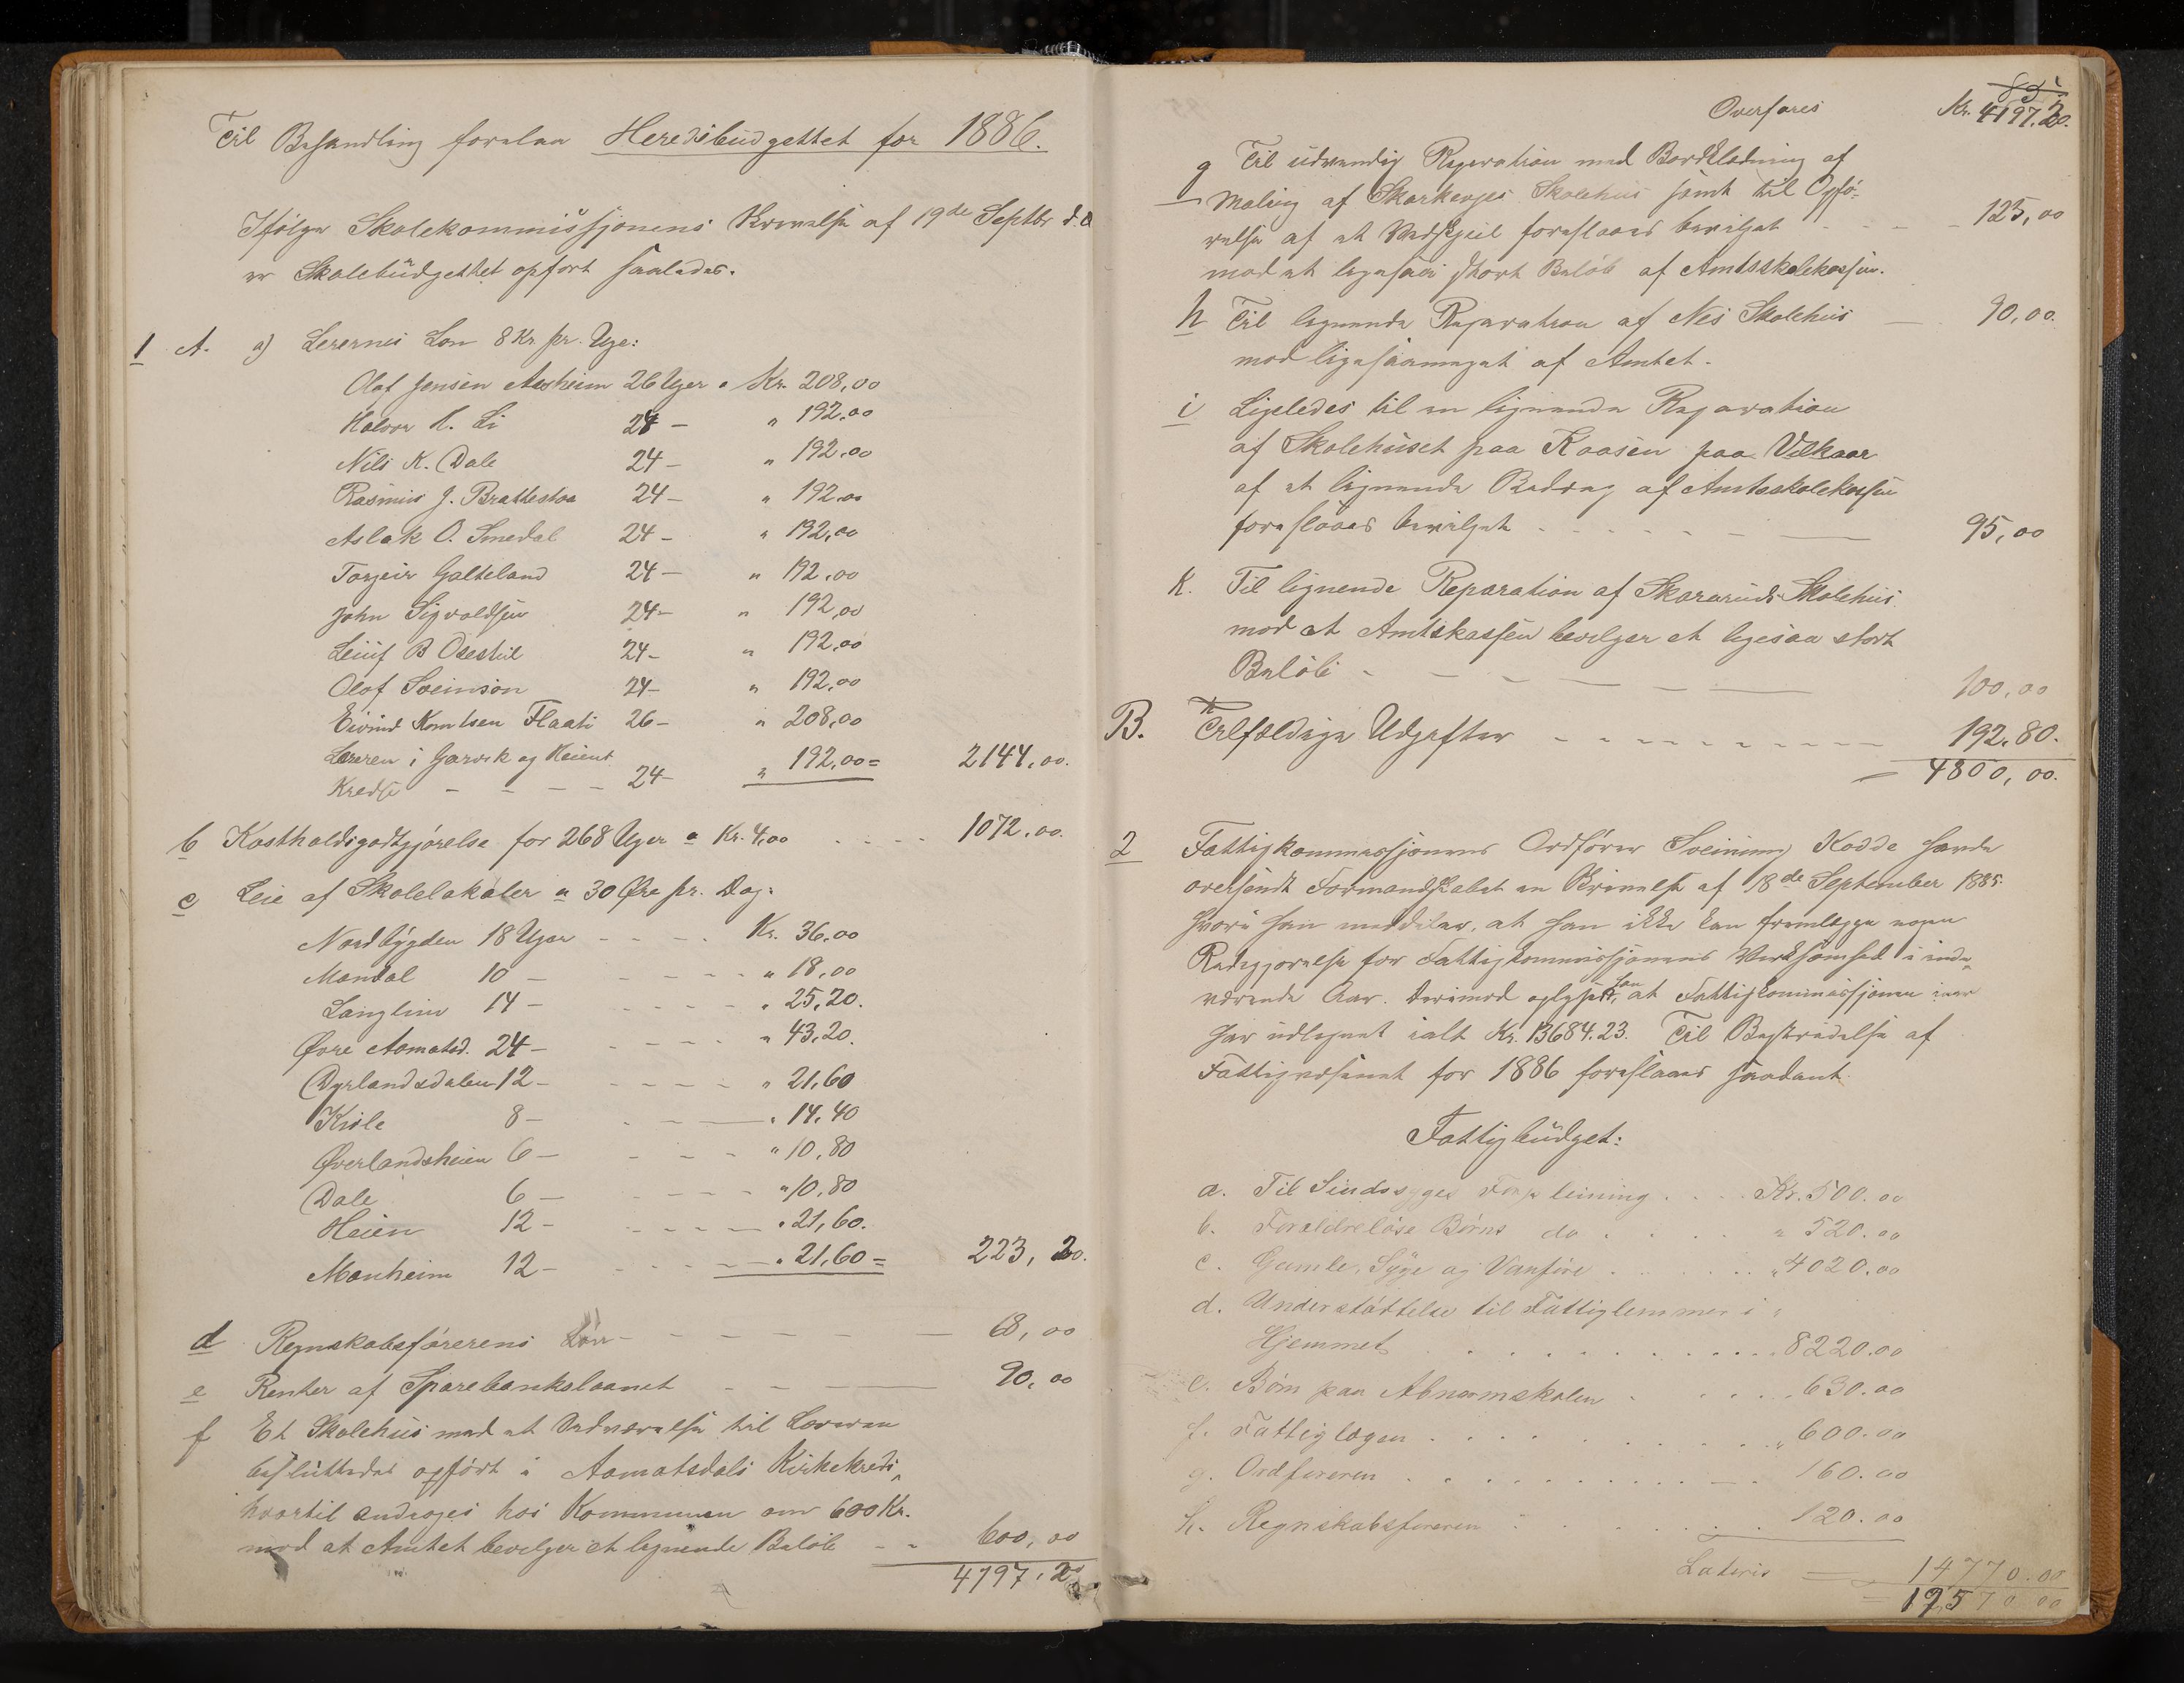 Til Behandling forelaa Heredsbudgettet for 1886.
Ifölge Skolekommissjonens Skrivelse af 19de Septbr d.a
er Skolebudgettet opfort saaledes.
1 A. a) Lerernes Lon 8 Kr pr. Uge:
Olaf Jensen Aasheim 26 Uger a Kr. 208,00
Halvor H. Li 24 — " 192.00
Nils K. Dale 24 — " 192.00
Rasmus J. Brattestaa 24 — " 192.00
Aslak O. Smedal 24 — " 192,00
Torgeir Galteland 24 — " 192.00
John Sigvaldsen 24 — " 192,00
Leiuf B Ofestul 24 — " 192,00
Olaf Sveinson 24 — " 192,00
Eivind Knutsen Flaati 26 — " 208,00
Læreren i Garvik og Heiens
Kredse - - - - 24 — " 192,00 = 2144,00.
b Kostholdsgodtgjórelse for 268 Uger a Kr. 4,00 - - - - 1072.00.
c Leie af Skolelokaler a 30 Øre pr. Dag:
Nordbygden 18 Uger - - - - Kr. 36,00
Mandal 10 — - - - - " 18,00
Langlim 14 — - - - - " 25,20.
Øvre Aamotsd. 24 — - - - - " 43,20.
Dyrlandsdalen 12 — - - - - " 21,60
Kiile 8 — - - — " 14,40
Øverlandsheien 6 — - - - - " 10,80
Dale 6 — - - - - " 10,80
Heien 12 — - - - - " 21,60.
Manheim 12 — - - - - " 21,60 = 223, 20.
d Regnskabsförerens Lön - - - - - — 68,00
e Renter af Sparebankslaanet - - — 90,00
f Et Skolehus med et Vedværelse til Læreren
besluttedes opfört i Aamotsdals Kirkekreds,
hvortil andrages hos Kommunen om 600 Kr.
mod at Amtet bevelger et lignende Belöb - - 600,00
4197.20
Overføres Kr. 4197.20.
g Til udvendig Reparation med Bordklædning af
Maling af Skarkenges Skolehus samt til Opfö-
relse af et Vedskjul foreslaaes bevilget - - - - 125,00
mod et ligesaa stort Belöb af Amtsskolekassen.
h Til lignende Reparation af Nes Skolehus — 90,00.
mod ligesaameget af Amtet.
i Ligeledes til en lignende Reparation
af Skolehuset paa Kaasen paa Vilkaar
af et lignende Bidrag af Amtsskolekassen
foreslaaes bevilget - - - - - — 95,00
k. Til lignende Reparation af Skareruds Skolehus
mod at Amtskassen bevelger et ligesaa stort
Belöb - - - — — - — 100,00
B. Tilfældige Udgifter - - - - - - - - - — 192.80.
= 4800,00.
2 Fattigkommissjonens Ordförer Sveinung Kodde havde
oversendt Formandskabet en Skrivelse af 18de September 1885.
hvori han meddeler, at han ikke kan fremlægge nogen
Redegjorelse for Fattigkommissjonens Verksomhed i inde-
værende Aar. Derimod oplyser han, at Fattigkommissjonen iaar
har udlignet ialt Kr. 13684.23. Til Bestridelse af
Fattigvæsenet for 1886 foreslaaes saadant
Fattigbudget:
a. Til Sindssyges Forpleining . . . Kr. 500.00
b. Forældrelöse Börns do . . . . " 520.00
c. Gamle, Syge og Vanföre . . . . . " 4020.00
d. Understöttelse til Fattiglemmer i "
Hjemmet . . . . . . . . . . 8220.00
e. Börn paa Abnormskolen . . . . . 630.00
f. Fattiglægen . . . . . . . . . " 600.00
g. Ordföreren . . . . . . . . . . 160.00
h. Regnskabsföreren . . . . . . . 120.00
Lateris = 14770.00
= 12570 00